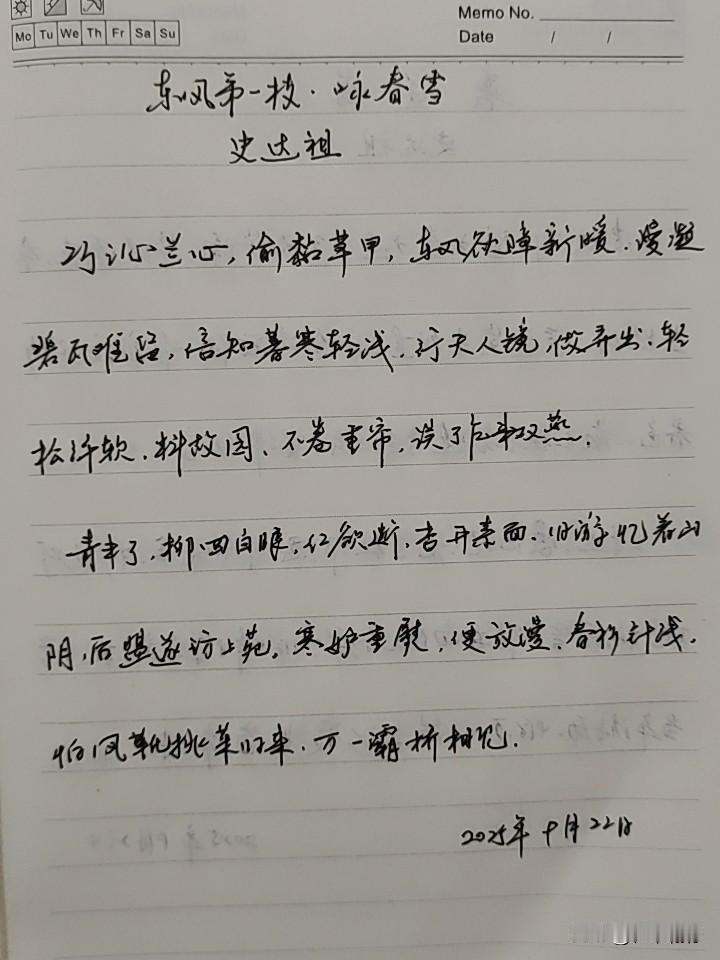 Memo No.
Mo Tu We Th Fr Sa Su
Date / /
东风第一枝·咏春雪
史达祖
巧沁兰心，偷黏草甲，东风欲障新暖。漫凝
碧瓦难留，信知暮寒轻浅。行天入镜，做弄出、轻
松纤软。料故园、不卷重帘，误了乍来双燕。
青未了，柳回白眼，红欲断，杏开素面。旧游忆着山
阴，后盟遂访上苑。寒炉重熨，便放漫、春衫针线。
怕凤靴挑菜归来，万一灞桥相见。
2025年9月22日